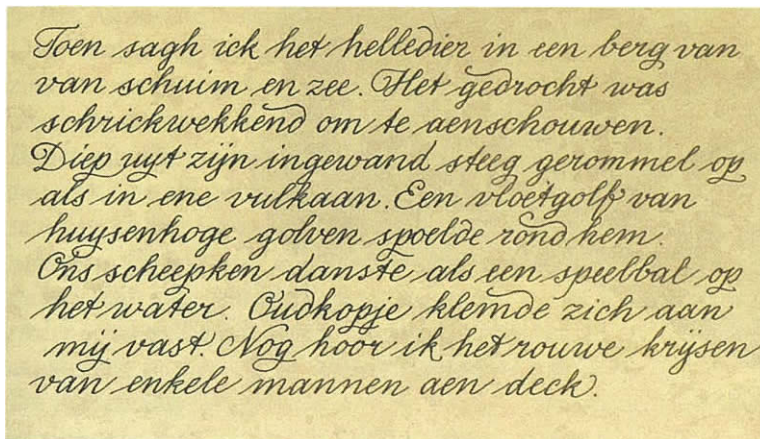 Toen sagh ick het helledier in een berg van
van schuim en zee. Het gedrocht was
schrickwekkend om te aenschouwen.
Diep uyt zijn ingewand steeg gerommel op
als in ene vulkaan. Een vloetgolf van
huysenhoge golven spoelde rond hem.
Ons scheepken danste als een speelbal op
het water. Oudkopje klemde zich aan
mij vast. Nog hoor ik het rouwe krijsen
van enkele mannen aen deck.